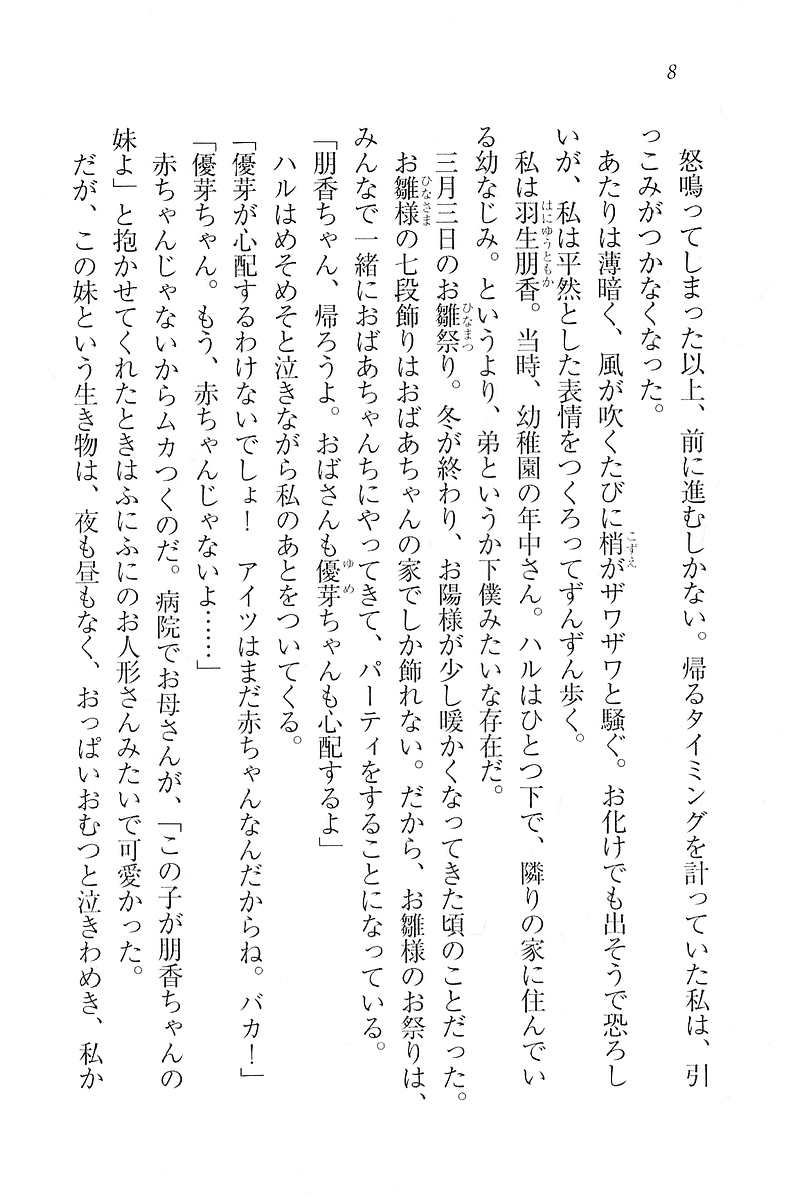 8
怒鳴ってしまった以上、前に進むしかない。帰るタイミングを計っていた私は、引
っこみがつかなくなった。
あたりは薄暗く、風が吹くたびに梢がザワザワと騒ぐ。お化けでも出そうで恐ろし
いが、私は平然とした表情をつくろってずんずん歩く。
私は羽生朋香。当時、幼稚園の年中さん。ハルはひとつ下で、隣りの家に住んでい
る幼なじみ。というより、弟というか下僕みたいな存在だ。
三月三日のお雛祭り。冬が終わり、お陽様が少し暖かくなってきた頃のことだった。
お雛様の七段飾りはおばあちゃんの家でしか飾れない。だから、お雛様のお祭りは、
みんなで一緒におばあちゃんちにやってきて、パーティをすることになっている。
「朋香ちゃん、帰ろうよ。おばさんも優芽ちゃんも心配するよ」
ハルはめそめそと泣きながら私のあとをついてくる。
「優芽が心配するわけないでしょ！　アイツはまだ赤ちゃんなんだからね。バカ！」
「優芽ちゃん。もう、赤ちゃんじゃないよ……」
赤ちゃんじゃないからムカつくのだ。病院でお母さんが、「この子が朋香ちゃんの
妹よ」と抱かせてくれたときはふにふにのお人形さんみたいで可愛かった。
だが、この妹という生き物は、夜も昼もなく、おっぱいおむつと泣きわめき、私か